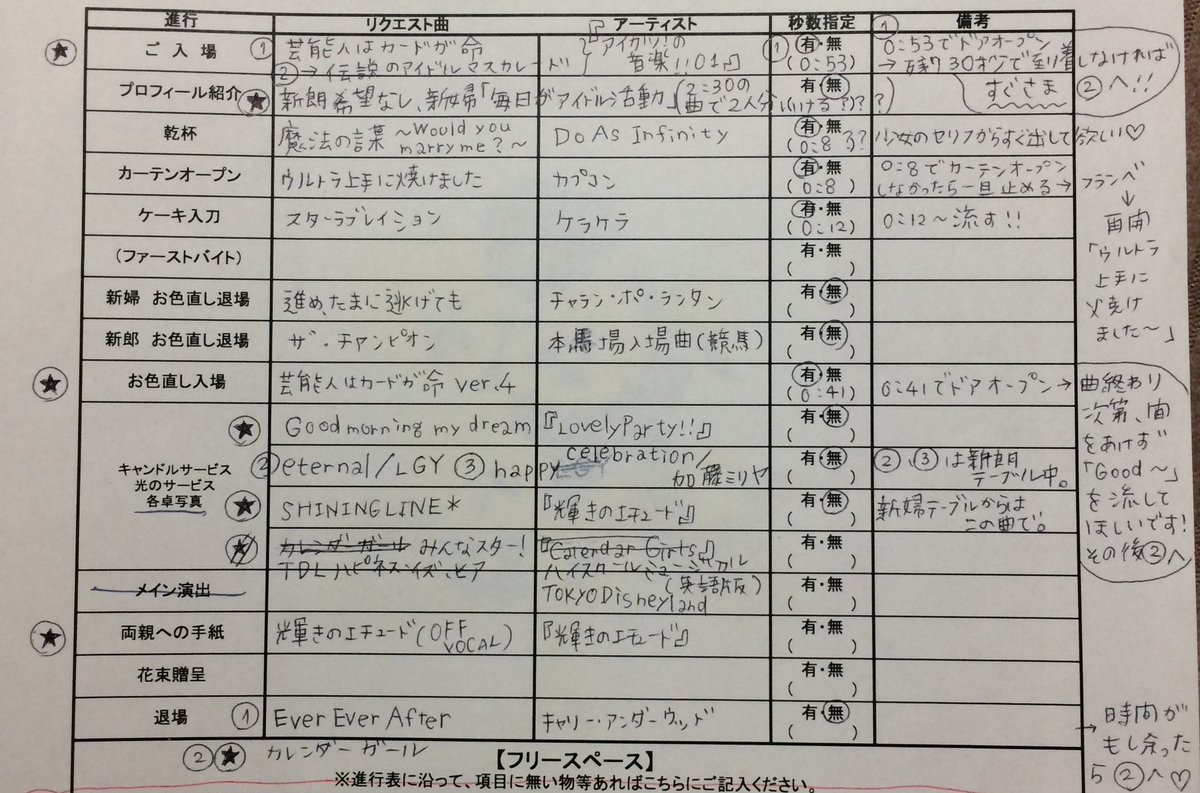 進行 リクエスト曲 アーティスト 秒数指定 備考
★ ご入場 ① 芸能人はカードが命 『アイカツ!の音楽!!01』 ① 有・無 (0:53) ① 0:53でドアオープン
②→伝説のアイドルマスカレード →残り30秒で到着しなければ
すぐさま②へ!!
プロフィール紹介 ★ 新朗希望なし、新婦「毎日がアイドル活動」(2:30の曲で2人分いける?)?? 有・無
乾杯 魔法の言葉 〜Would you marry me?〜 Do As Infinity 有・無 (0:8 ?)? 少女のセリフからすぐ出して欲しい♡
カーテンオープン ウルトラ上手に焼けました カプコン 有・無 (0:8) 0:8でカーテンオープン
しなかったら一旦止める→フランベ
↓
再開
「ウルトラ
上手に
焼け
ました〜」
ケーキ入刀 スターラブレイション ケラケラ 有・無 (0:12) 0:12〜流す!!
(ファーストバイト) 有・無 ( )
新婦 お色直し退場 進め、たまに逃げても チャラン・ポ・ランタン 有・無 ( )
新郎 お色直し退場 ザ・チャンピオン 本馬場入場曲(競馬) 有・無 ( )
★ お色直し入場 芸能人はカードが命 ver.4 有・無 (0:41) 0:41でドアオープン→
曲終わり
次第、間
をあけず
「Good〜」
を流して
ほしいです!
その後②へ
キャンドルサービス
光のサービス
各卓写真
★ Good morning my dream 『Lovely Party!!』 有・無 ( )
② eternal/LGY ③ happy celebration/加藤ミリヤ 有・無 ( ) ②、③は新朗
テーブル中。
★ SHINING LINE* 『輝きのエチュード』 有・無 ( ) 新婦テーブルからは
この曲で。
★ カレンダーガール みんなスター! 『Calendar Girls』 有・無 ( )
TDLハピネスイズヒア ハイスクールミュージカル
メイン演出 (英語版) TOKYO Disneyland 有・無 ( )
★ 両親への手紙 輝きのエチュード(OFF VOCAL) 『輝きのエチュード』 有・無 ( )
花束贈呈 有・無 ( )
退場 ① Ever Ever After キャリー・アンダーウッド 有・無 ( )
→時間が
もし余った
ら②へ♡
②★ カレンダーガール
【フリースペース】
※進行表に沿って、項目に無い物等あればこちらにご記入ください。